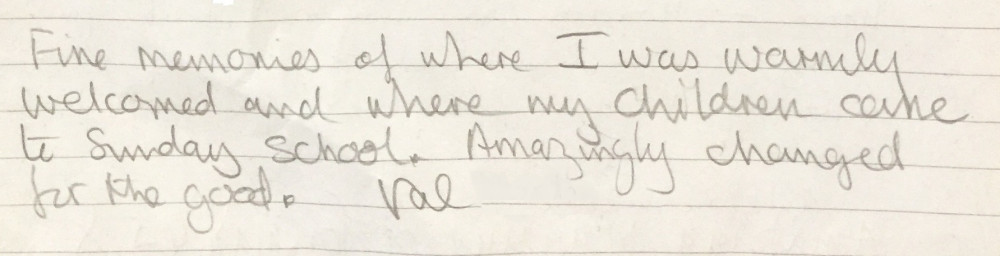 Fine memories of where I was warmly
welcomed and where my children came
to Sunday school. Amazingly changed
for the good. Val